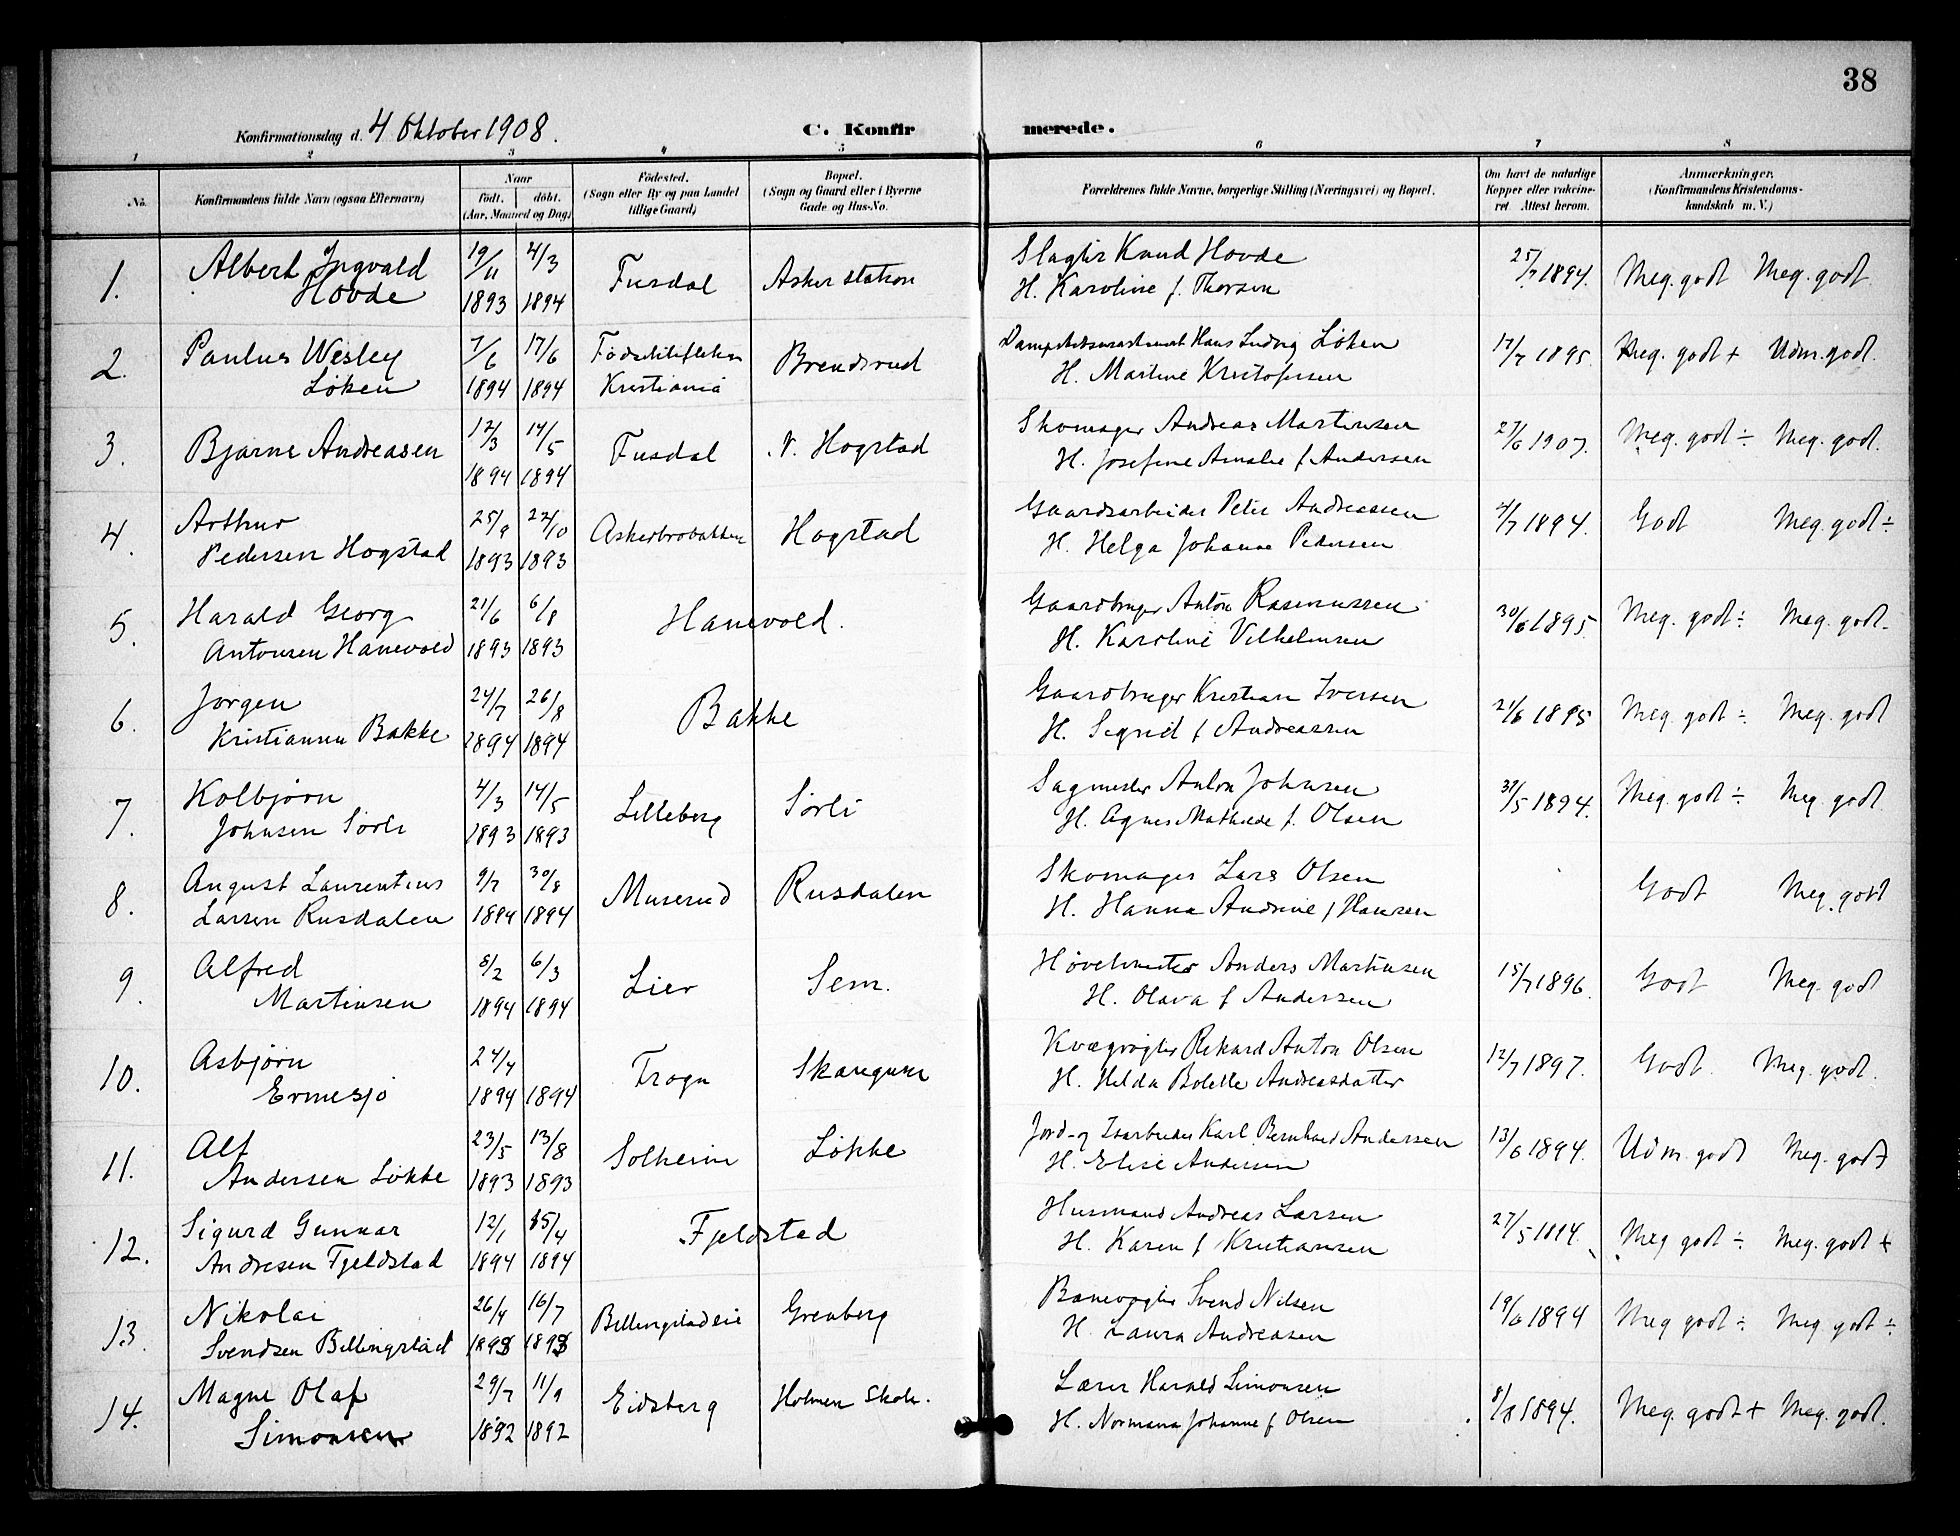 38
Konfirmationsdag d. 4 Oktober 1908.
C. Konfirmerede.
1 2 3 4 5 6 7 8
No.
Konfirmandens fulde Navn (ogsaa Efternavn)
Naar
født. døbt.
(Aar, Maaned og Dag)
Fødested.
(Sogn eller By og paa Landet
tillige Gaard)
Bopæl.
(Sogn og Gaard eller i Byerne
Gade og Hus-No.
Forældrenes fulde Navne, borgerlige Stilling (Næringsvei) og Bopæl.
Om havt de naturlige
Kopper eller vakcine-
ret. Attest herom.
Anmærkninger.
(Konfirmandens Kristendoms-
kundskab m. V.)
1. Albert Ingvald 19/11 4/3 Fusdal Asker station Slagter Knud Hovde 25/7 1894. Meg. godt Meg. godt
Hovde 1893 1894 H. Karoline f. Thorsen
2. Paulus Wesley 7/6 17/6 Fødselsstiftelsen Brendsrud Hans Ludvig Løken 17/7 1895 Meg. godt + Udm. godt.
Løken 1894 1894 Kristiania H. Martine Kristofersen
3. Bjarne Andreasen 12/3 14/5 Fusdal N. Hogstad Skomager Andreas Martinsen 27/6 1907. Meg. godt ÷ Meg. godt.
1894 1894 H. Josefine Amalie f. Andersen
4. Arthur 25/9 22/10 Askerbrobakken Hogstad Gaardsarbeider Peter Andreassen 4/7 1894. Godt Meg. godt ÷
Pedersen Hogstad 1893 1893 H. Helga Johanne Pedersen
5. Harald Georg 21/6 6/8 Hanevold. Gaardbruger Anton Rasmussen 30/6 1895 Meg. godt ÷ Meg. godt
Antonsen Hanevold 1893 1893 H. Karoline Vilhelmsen
6. Jørgen 24/7 26/8 Bakke Gaardbruger Kristian Iversen 21/6 1895 Meg. godt ÷ Meg. godt
Kristiansen Bakke 1894 1894 H. Sigrid f. Andreassen
7. Kolbjørn 4/3 14/5 Lilleberg Sørli Sagmester Anton Johnsen 31/5 1894. Meg. godt ÷ Meg. godt
Johnsen Sørli 1893 1893 H. Agnes Mathilde f. Olsen
8. August Laurentius 9/7 30/8 Muserud Rusdalen Skomager Lars Olsen Godt Meg. godt
Larsen Rusdalen 1894 1894 H. Hanna Andrine f. Hansen
9. Alfred 8/2 6/3 Lier Sem. Høvelmester Anders Martinsen 15/7 1896 Godt Meg. godt
Martinsen 1894 1894 H. Olava f. Andersen
10. Asbjørn 24/4 Frogn Skaugum Kvægrøgter Rikard Anton Olsen 12/7 1897. Godt Meg. godt.
Ermesjø 1894 1894 H. Hilda Bolette Andreasdatter
11. Alf 23/5 13/8 Solheim Løkke Jord- og Isarbeider Karl Bernhard Andersen 13/6 1894. Udm. godt Meg. godt
Andersen Løkke 1893 1893 H. Elise Andersen
12. Sigurd Gunnar 12/1 15/4 Fjeldstad Husmand Andreas Larsen 27/5 1894. Meg godt ÷ Meg. godt +
Andresen Fjeldstad 1894 1894 H. Karen f. Kristiansen
13. Nikolai 26/4 16/7 Billingstadeie Grenberg Banevogter Svend Nilsen 19/6 1894 Meg godt ÷ Meg. godt ÷
Svendsen Billingstad 1893 1893 H. Laura Andreasen
14. Magne Olaf 29/7 11/9 Eidsberg Holmen Skole. Lærer Harald Simonsen 8/8 1894. Meg. godt + Meg. godt.
Simonsen 1892 1892 H. Normana Johanne f. Olsen